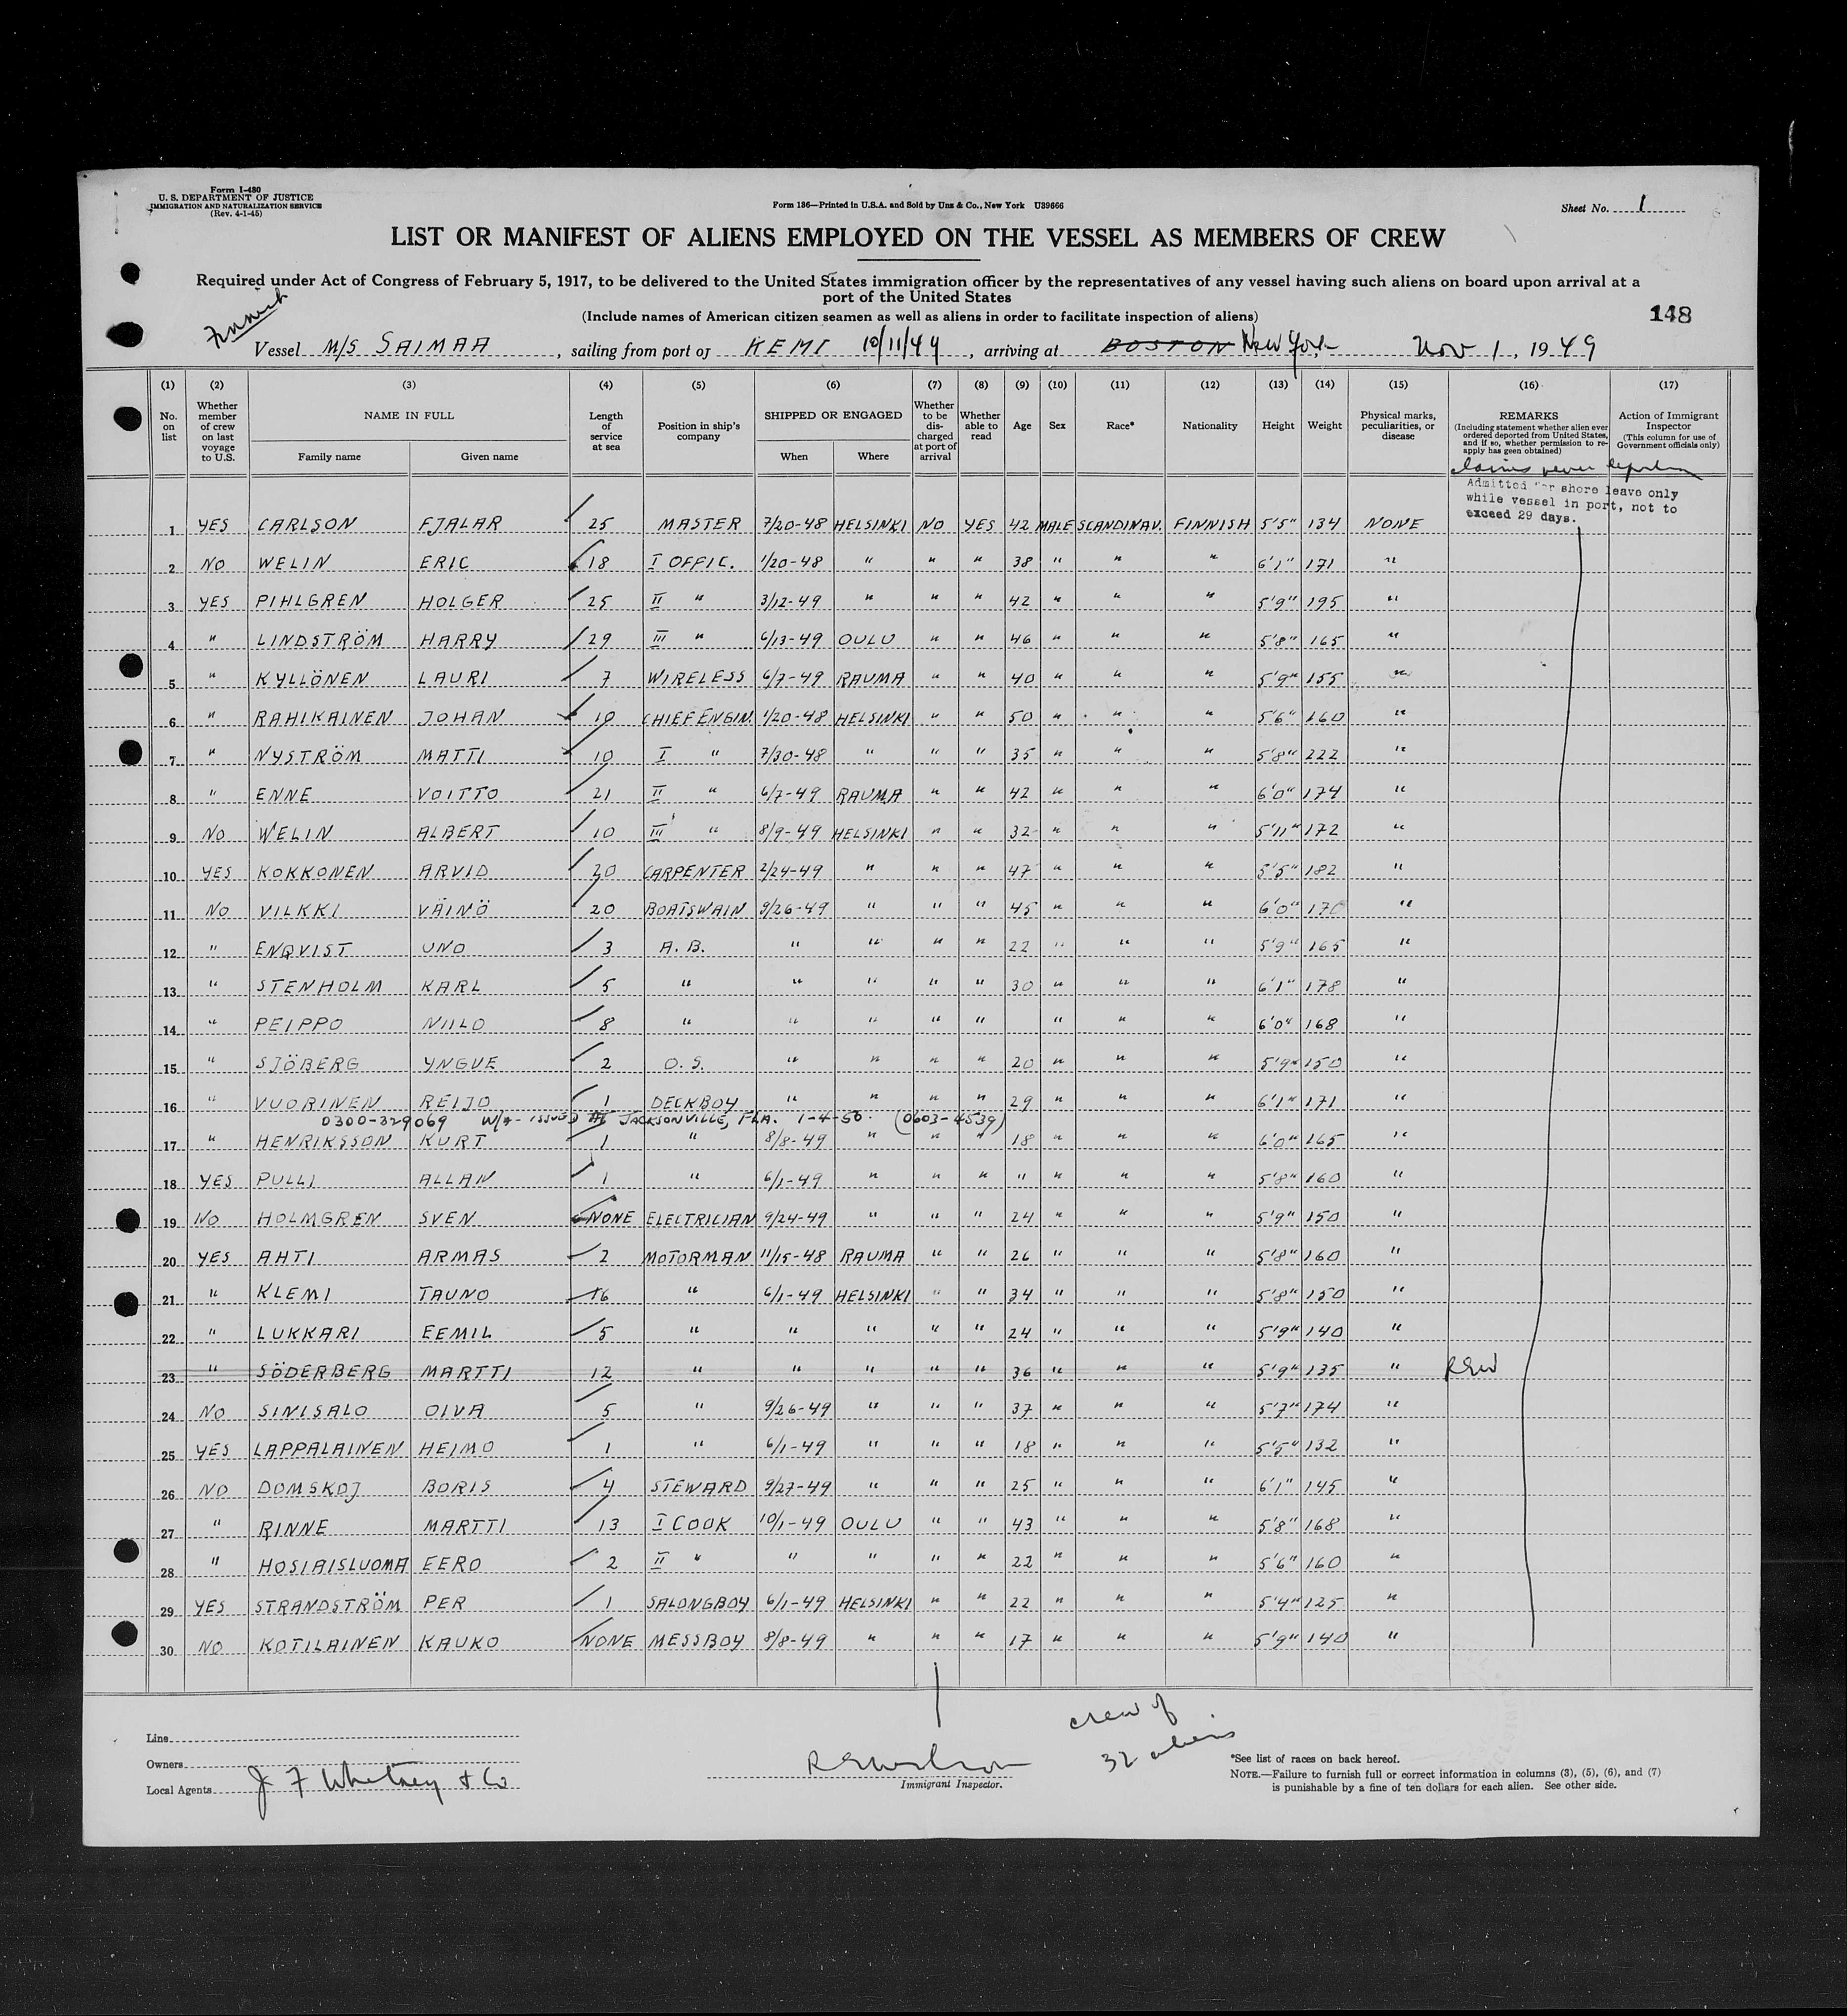 Form I-480
U. S. DEPARTMENT OF JUSTICE
IMMIGRATION AND NATURALIZATION SERVICE
(Rev. 4-1-45)
Form 186—Printed in U.S.A. and Sold by Unz & Co., New York U39666
Sheet No. 1
LIST OR MANIFEST OF ALIENS EMPLOYED ON THE VESSEL AS MEMBERS OF CREW
Required under Act of Congress of February 5, 1917, to be delivered to the United States immigration officer by the representatives of any vessel having such aliens on board upon arrival at a
port of the United States
(Include names of American citizen seamen as well as aliens in order to facilitate inspection of aliens)
148
Finnish
Vessel M/S SAIMAA, sailing from port of KEMI 10/11/49, arriving at BOSTON New York Nov 1, 1949
(1) (2) (3) (4) (5) (6) (7) (8) (9) (10) (11) (12) (13) (14) (15) (16) (17)
No. on list
Whether member of crew on last voyage to U.S.
NAME IN FULL
Family name
Given name
Length of service at sea
Position in ship's company
SHIPPED OR ENGAGED
When
Where
Whether to be discharged at port of arrival
Whether able to read
Age
Sex
Race*
Nationality
Height
Weight
Physical marks, peculiarities, or disease
REMARKS
(Including statement whether alien ever ordered deported from United States, and if so, whether permission to re-apply has geen obtained)
Action of Immigrant Inspector
(This column for use of Government officials only)
claims never
Admitted for shore leave only
while vessel in port, not to
exceed 29 days.
1 YES CARLSON FJALAR 25 MASTER 7/20-48 HELSINKI NO YES 42 MALE SCANDINAV. FINNISH 5'5" 134 NONE
2 NO WELIN ERIC 18 I OFFIC. 1/20-48 " " " 38 " " " 6'1" 171 "
3 YES PIHLGREN HOLGER 25 II " 3/12-49 " " " 42 " " " 5'9" 195 "
4 " LINDSTRÖM HARRY 29 III " 6/13-49 OULU " " 46 " " " 5'8" 165 "
5 " KYLLÖNEN LAURI 7 WIRELESS 6/7-49 RAUMA " " 40 " " " 5'9" 155 "
6 " RAHIKAINEN JOHAN 19 CHIEF ENGIN. 1/20-48 HELSINKI " " 50 " " " 5'6" 160 "
7 " NYSTRÖM MATTI 10 I " 7/30-48 " " " 35 " " " 5'8" 222 "
8 " ENNE VOITTO 21 II " 6/7-49 RAUMA " " 42 " " " 6'0" 174 "
9 NO WELIN ALBERT 10 III " 8/9-49 HELSINKI " " 32 " " " 5'11" 172 "
10 YES KOKKONEN ARVID 20 CARPENTER 2/24-49 " " " 47 " " " 5'5" 182 "
11 NO VILKKI VÄINÖ 20 BOATSWAIN 9/26-49 " " " 45 " " " 6'0" 170 "
12 " ENQVIST UNO 3 A. B. " " " " 22 " " " 5'9" 165 "
13 " STENHOLM KARL 5 " " " " " 30 " " " 6'1" 178 "
14 " PEIPPO NIILO 8 " " " " " " " " 6'0" 168 "
15 " SJÖBERG YNGVE 2 O. S. " " " " 20 " " " 5'9" 150 "
16 " VUORINEN REIJO 1 DECKBOY " " " " 29 " " " 6'1" 171 "
0300-329069 W/A- ISSUED AT JACKSONVILLE, FLA. 1-4-50. (0603-4539)
17 " HENRIKSSON KURT 1 " 8/8-49 " " " 18 " " " 6'0" 165 "
18 YES PULLI ALLAN 1 " 6/1-49 " " " " " " " 5'8" 160 "
19 NO HOLMGREN SVEN NONE ELECTRICIAN 9/24-49 " " " 24 " " " 5'9" 150 "
20 YES AHTI ARMAS 2 MOTORMAN 11/15-48 RAUMA " " 26 " " " 5'8" 160 "
21 " KLEMI TAUNO 16 " 6/1-49 HELSINKI " " 34 " " " 5'8" 150 "
22 " LUKKARI EEMIL 5 " " " " " 24 " " " 5'9" 140 "
23 " SÖDERBERG MARTTI 12 " " " " " 36 " " " 5'9" 135 " REW
24 NO SINISALO OIVA 5 " 9/26-49 " " " 37 " " " 5'7" 174 "
25 YES LAPPALAINEN HEIMO 1 " 6/1-49 " " " 18 " " " 5'5" 132 "
26 NO DOMSKOJ BORIS 4 STEWARD 9/27-49 " " " 25 " " " 6'1" 145 "
27 " RINNE MARTTI 13 I COOK 10/1-49 OULU " " 43 " " " 5'8" 168 "
28 " HOSIAISLUOMA EERO 2 II " " " " " 22 " " " 5'6" 160 "
29 YES STRANDSTRÖM PER 1 SALONGBOY 6/1-49 HELSINKI " " 22 " " " 5'4" 125 "
30 NO KOTILAINEN KAUKO NONE MESSBOY 8/8-49 " " " 17 " " " 5'9" 140 "
crew of
32 aliens
Line
Owners
Local Agents J F Whitney & Co
Immigrant Inspector.
*See list of races on back hereof.
NOTE.—Failure to furnish full or correct information in columns (3), (5), (6), and (7)
is punishable by a fine of ten dollars for each alien. See other side.